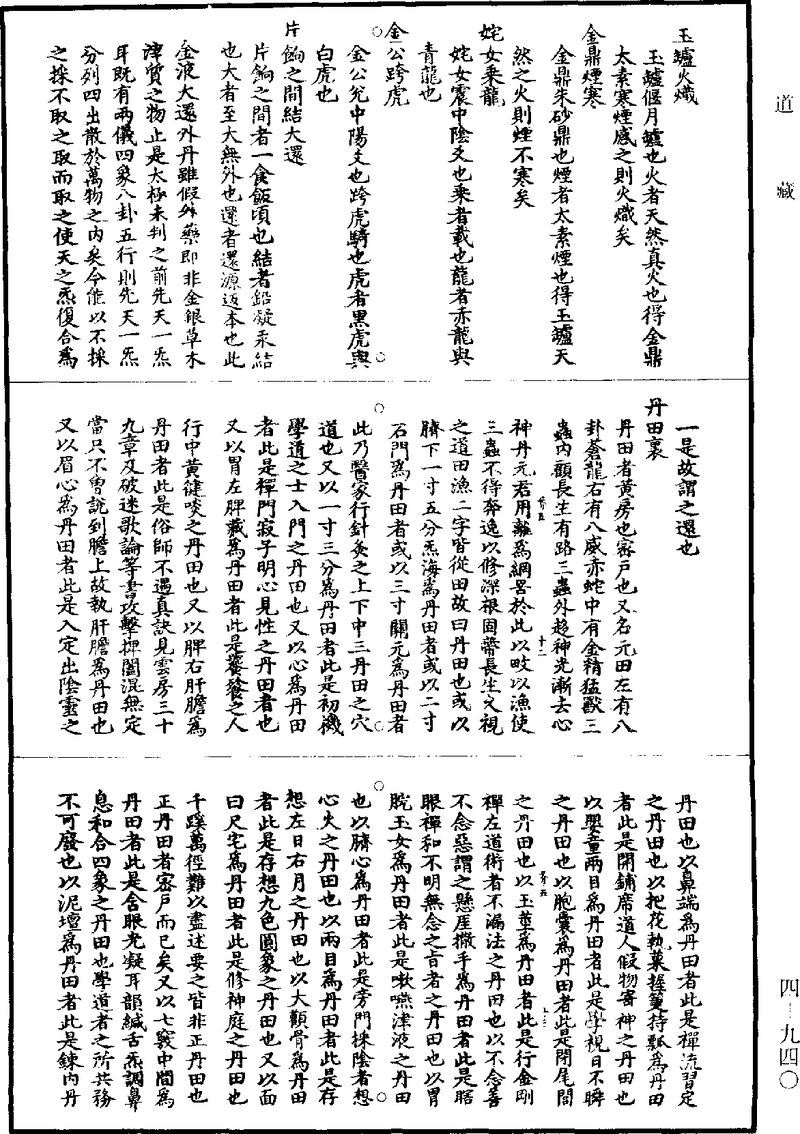 道藏
玉鑪火熾
玉鑪偃月鑪也火者天然真火也得金鼎
太素寒煙感之則火熾矣
金鼎煙寒
金鼎朱砂鼎也煙者太素煙也得玉鑪天
然之火則煙不寒矣
姹女乘龍
姹女震中陰爻也乘者載也龍者赤龍與
青龍也
金公跨虎
金公兊中陽爻也跨虎騎也虎者黑虎與
白虎也
片餉之間結大還
片餉之間者一食飯頃也結者鉛凝汞結
也大者至大無外也還者還源返本也此
金液大還外丹雖假外藥即非金銀草木
滓質之物止是太極未判之前先天一炁
耳既有兩儀四象八卦五行則先天一炁
分列四出散於萬物之內矣今能以不採
之採不取之取而取之使天之炁復合爲
一是故謂之還也
丹田裏
丹田者黄房也密戶也又名元田左有八
卦蒼龍右有八威赤蛇中有金精猛獸三
蟲內顧長生有路三蟲外趍神光漸去心
神丹元君用離爲網罟於此以畋以漁使
三蟲不得奔逸以修深根固蔕長生久視
之道田漁二字皆從田故曰丹田也或以
臍下一寸五分炁海爲丹田者或以二寸
石門爲丹田者或以三寸關元爲丹田者
此乃醫家行針灸之上下中三丹田之穴
道也又以一寸三分爲丹田者此是初機
學道之士入門之丹田也又以心爲丹田
者此是禪門寂子明心見性之丹田者也
又以胃左脾藏爲丹田者此是饕餮之人
行中黄健啖之丹田也又以脾右肝膽爲
丹田者此是俗師不遇真訣見雲房三十
九章及破迷歌論等書攻擊捭闔混無定
當只不曾說到膽上故執肝膽爲丹田也
又以眉心爲丹田者此是入定出陰靈之
丹田也以鼻端爲丹田者此是禪流習定
之丹田也以把花執菓握筆持瓢爲丹田
者此是開鋪席道人假物寄神之丹田也
以嬰童兩目爲丹田者此是學視日不瞬
之丹田也以胞囊爲丹田者此是閉尾閭
之丹田也以玉莖爲丹田者此是行金剛
禪左道術者不漏法之丹田也以不念善
不念惡謂之懸厓撒手爲丹田者此是瞎
眼禪和不明無念之旨者之丹田也以胃
脘玉女爲丹田者此是嗽嚥津液之丹田
也以臍心爲丹田者此是旁門採陰者想
心火之丹田也以兩目爲丹田者此是存
想左日右月之丹田也以大顴骨爲丹田
者此是存想九色圓象之丹田也又以面
曰尺宅爲丹田者此是修神庭之丹田也
千蹊萬徑難以盡述要之皆非正丹田也
正丹田者密戶而已矣又以七竅中間爲
丹田者此是含眼光凝耳韻緘舌炁調鼻
息和合四象之丹田也學道者之所共務
不可廢也以泥壇爲丹田者此是鍊內丹
四－九四〇